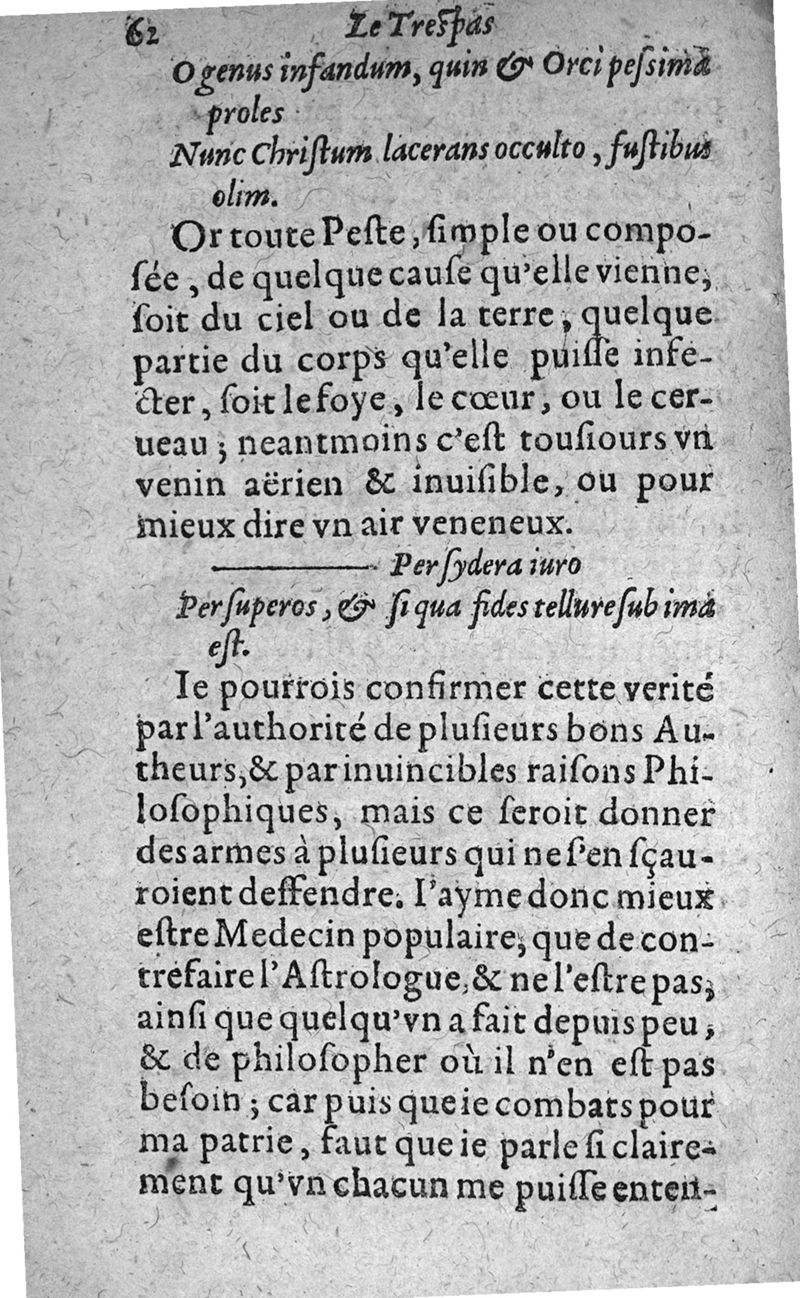 62 Le Treſpas
O genus infandum, quin & Orci peſsima
proles
Nunc Chriſtum lacerans occulto, fuſtibus
olim.
Or toute Peſte, ſimple ou compo-
ſée, de quelque cauſe qu'elle vienne,
ſoit du ciel ou de la terre, quelque
partie du corps qu'elle puiſſe infe-
cter, ſoit le foye, le cœur, ou le cer-
ueau ; neantmoins c'eſt touſiours vn
venin aërien & inuiſible, ou pour
mieux dire vn air veneneux.
Per ſydera iuro
Per ſuperos, & ſi qua fides tellure ſub ima
eſt.
Ie pourrois confirmer cette verité
par l'authorité de pluſieurs bons Au-
theurs, & par inuincibles raiſons Phi-
loſophiques, mais ce ſeroit donner
des armes à pluſieurs qui ne ſ'en ſçau-
roient deffendre. I'ayme donc mieux
eſtre Medecin populaire, que de con-
trefaire l'Aſtrologue, & ne l'eſtre pas,
ainſi que quelqu'vn a fait depuis peu,
& de philoſopher où il n'en eſt pas
beſoin ; car puis que ie combats pour
ma patrie, faut que ie parle ſi claire-
ment qu'vn chacun me puiſſe enten-